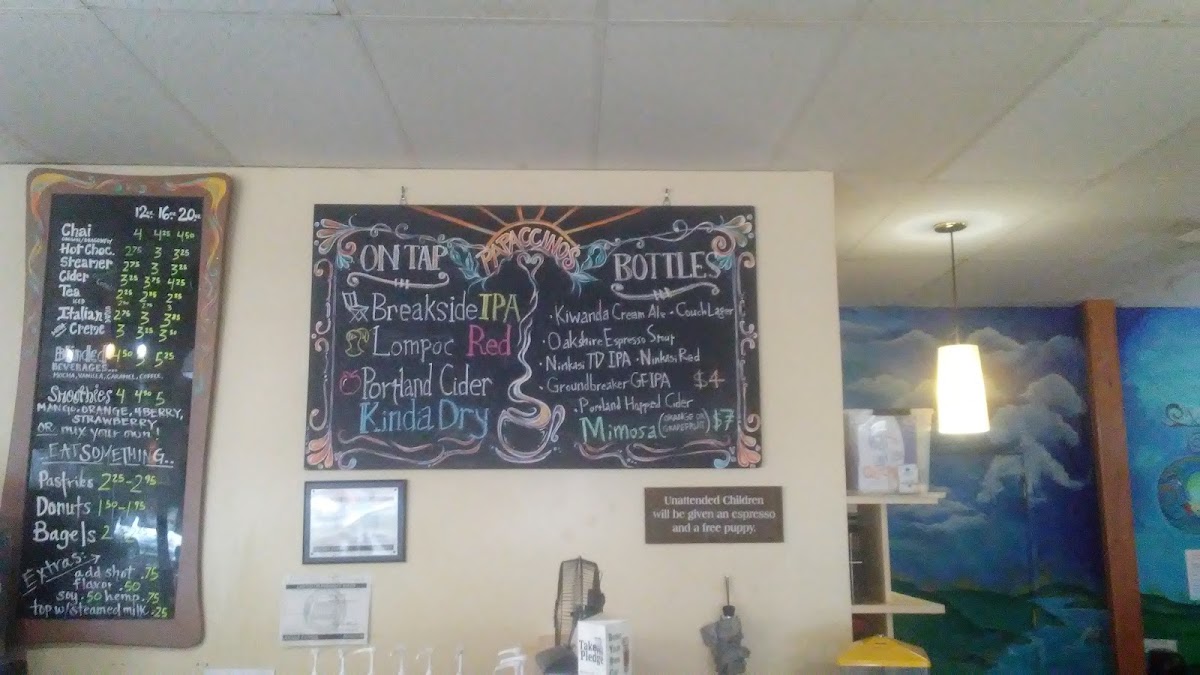 12oz 16oz 20oz
Chai 4 4.25 4.50
Hot Choc. 2.75 3 3.25
Steamer 2.75 3 3.25
Cider 3.25 3.75 4.25
Tea 2.25 2.25 2.25
ICED
Italian 2.75 3 3.25
& Creme 3 3.25 3.50
Blended 4.50 5 5.25
BEVERAGES...
MOCHA, VANILLA, CARAMEL, COFFEE
Smoothies 4 4.50 5
MANGO, ORANGE, 4BERRY,
STRAWBERRY
OR mix your own!
EAT SOMETHING...
Pastries 2.25-2.95
Donuts 1.50-1.95
Bagels 2
Extras:
add shot .75
flavor .50
soy .50 hemp .75
top w/steamed milk .25
PAPACCINO'S
ON TAP
Breakside IPA
Lompoc Red
Portland Cider
Kinda Dry
BOTTLES
• Kiwanda Cream Ale • Couch Lager
• Oakshire Espresso Stout
Ninkasi TD IPA • Ninkasi Red
• Groundbreaker GF IPA $4
• Portland Hopped Cider
Mimosa (ORANGE OR GRAPEFRUIT) $7
Unattended Children
will be given an espresso
and a free puppy.
Take
Pledge